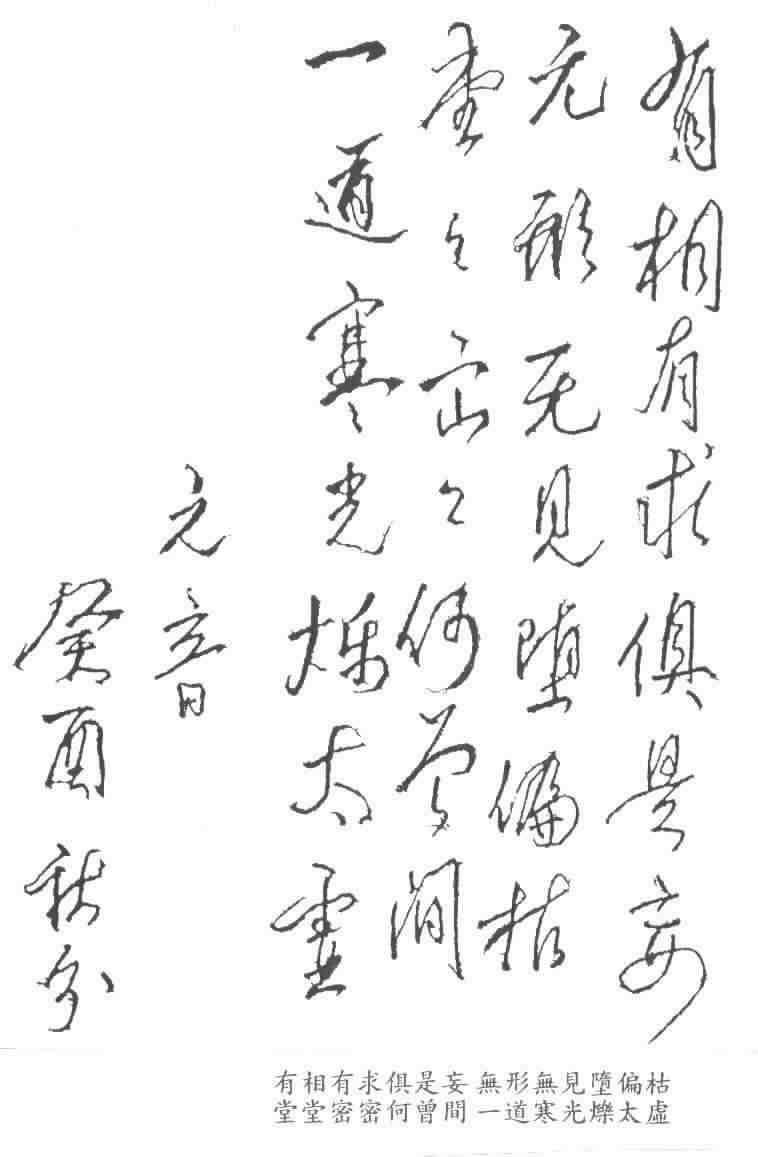 有相有求俱是妄
无形无见堕偏枯
堂々密々何曾間
一道寒光烁太虚
元音
癸酉秋分
有相有求俱是妄 無形無見墮偏枯
堂堂密密何曾間 一道寒光爍太虛